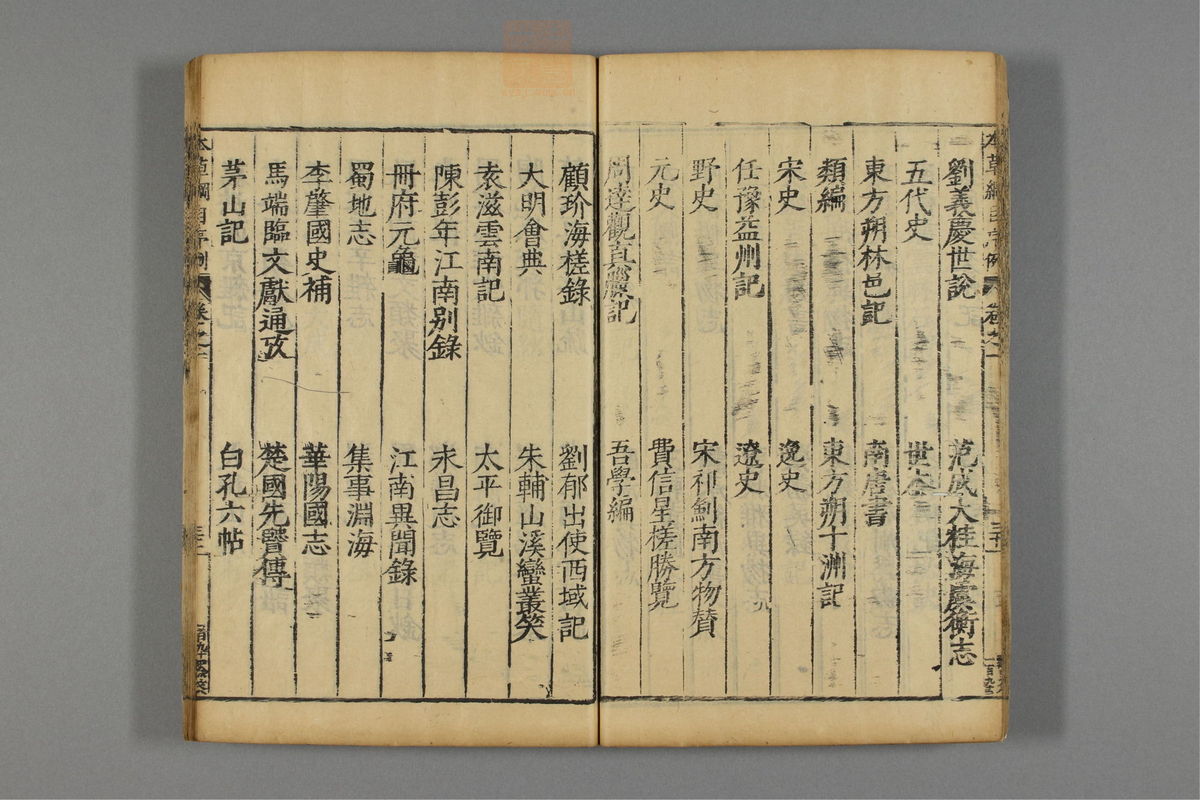 劉義慶世說　范成大桂海虞衡志
五代史　世本
東方朔林邑記　南唐書
類編　東方朔十洲記
宋史　逸史
任豫益州記　遼史
野史　宋祁劍南方物贊
元史　費信星槎勝覽
周達觀真臘記　吾學編
顧玠海槎錄　劉郁出使西域記
大明會典　朱輔山溪蠻叢笑
袁滋雲南記　太平御覽
陳彭年江南别錄　永昌志
冊府元龜　江南異聞錄
蜀地志　集事淵海
李肇國史補　華陽國志
馬端臨文獻通攷　楚國先賢傳
茅山記　白孔六帖
本草綱目序例　卷之一